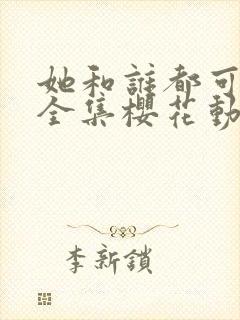 她和誰都可
全集櫻花動
李新鎖